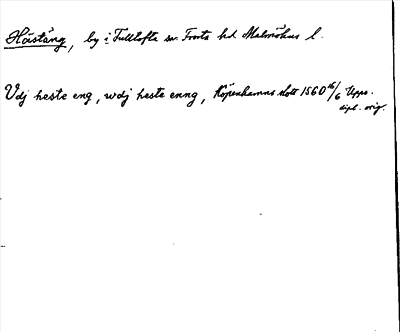 Hästäng, by i Fulltofta sn. Frosta hd Malmöhus l.
Vdj heste eng, wdj heste enng, Köpenhamns slott 1560 16/6 Upps.
dipl. orig.